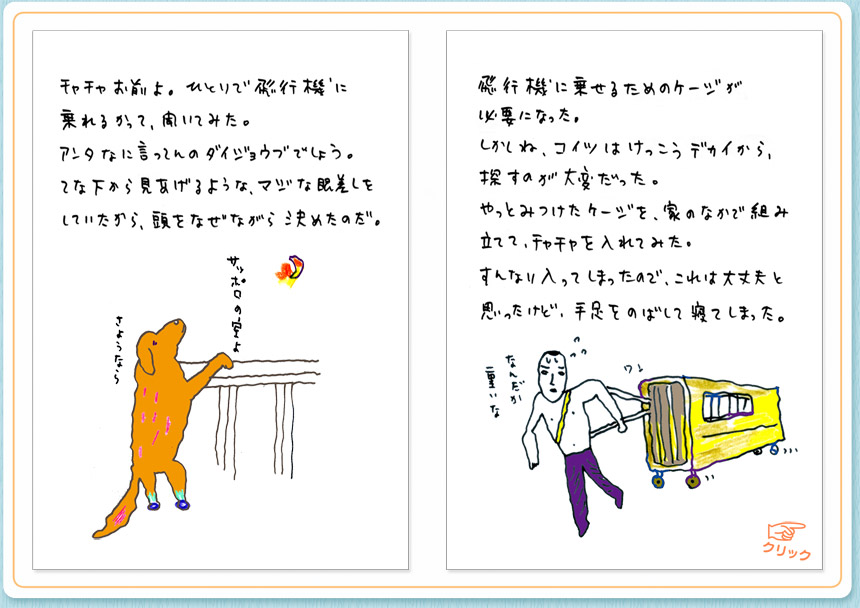 チャチャお前よ。ひとりで飛行機に
乗れるかって、聞いてみた。
アンタなに言ってんのダイジョウブでしょう。
てな下から見あげるような、マジな眼差しを
していたから、頭をなぜながら決めたのだ。
サッポロの空よ
さようなら
飛行機に乗せるためのケージが
必要になった。
しかしね、コイツはけっこうデカイから、
探すのが大変だった。
やっとみつけたケージを、家のなかで組み
立てて、チャチャを入れてみた。
すんなり入ってしまったので、これは大丈夫と
思ったけど、手足をのばして寝てしまった。
なんだか
重いな
ワン
クリック